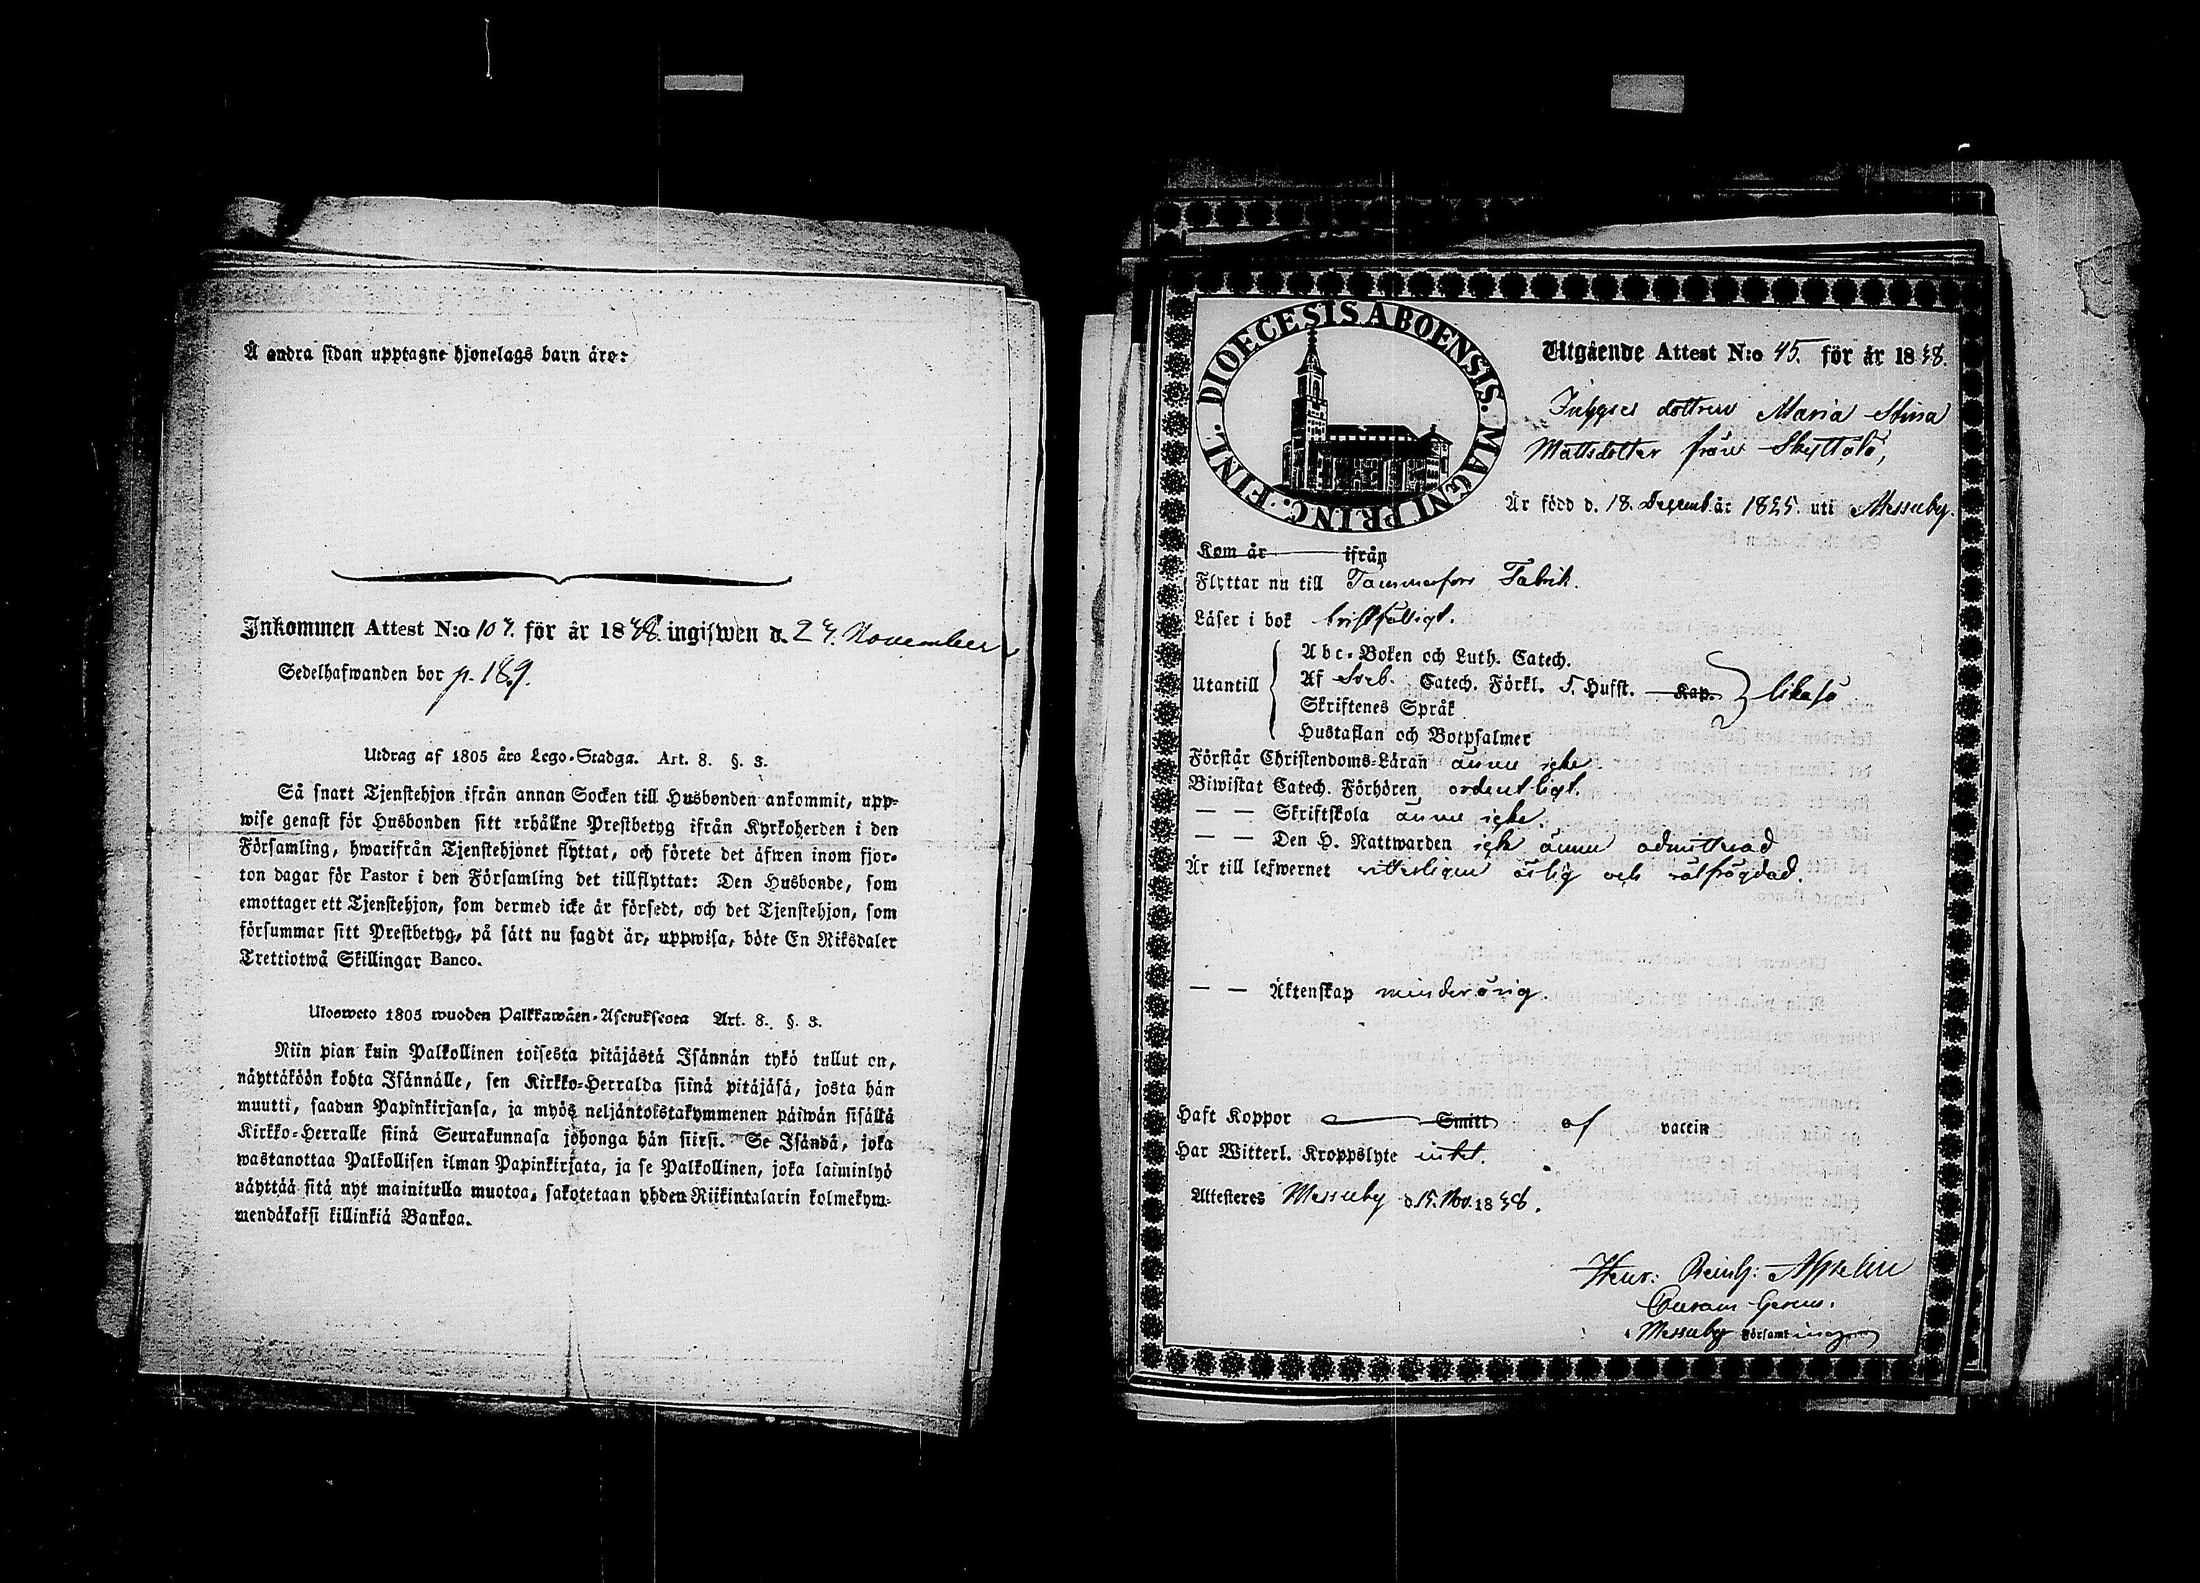 Å andra sidan upptagne hjonelags barn äro:
Inkommen Attest N:o 107. för år 1838. ingifwen d. 27. November
Sedelhafwanden bor p. 189.
Utdrag af 1805 års Lego-Stadga. Art. 8. §. 3.
Så snart Tjenstehjon ifrån annan Socken till Husbonden ankommit, upp-
wise genast för Husbonden sitt erhållne Prestbetyg ifrån Kyrkoherden i den
Församling, hwarifrån Tjenstehjonet flyttat, och förete det äfwen inom fjor-
ton dagar för Pastor i den Församling det tillflyttat: Den Husbonde, som
emottager ett Tjenstehjon, som dermed icke är försedt, och det Tjenstehjon, som
försummar sitt Prestbetyg, på sätt nu sagdt är, uppwisa, böte En Riksdaler
Trettiotwå Skillingar Banco.
Ulosweto 1805 wuoden Palkkawäen-Asetuksesta Art. 8. §. 3.
Niin pian kuin Palkollinen toisesta pitäjästä Isännän tykö tullut on,
näyttäköön kohta Isännälle, sen Kirkko-Herralda siinä pitäjäsä, josta hän
muutti, saadun Papinkirjansa, ja myös neljäntoistakymmenen päiwän sisällä
Kirkko-Herralle siinä Seurakunnasa johonga hän siirsi. Se Isändä, joka
wastanottaa Palkollisen ilman Papinkirjata, ja se Palkollinen, joka laiminlyö
näyttää sitä nyt mainitulla muotoa, sakotetaan yhden Riikintalarin kolmekym-
mendäkaksi killinkiä Bankoa.
DIOECESIS ABOENSIS. MAGNI PRINC. FINL.
Utgående Attest N:o 45. för år 1838.
Inhyses dottren Maria Stina
Mattsdotter från Skyttälä,
Är född d. 18. Decemb. år 1825. uti Messuby.
Kom år ifrån
Flyttar nu till Tammerfors Fabrik.
Läser i bok bristfälligt.
Utantill
Abc-Boken och Luth. Catech.
Af Sveb. Catech. Förkl. 5. Hufst. Kap. likaså
Skriftenes Språk
Hustaflan och Botpsalmer
Förstår Christendoms-Läran ännu icke.
Biwistat Catech. Förhören ordentligt.
— — Skriftskola ännu icke.
— — Den H. Nattwarden icke ännu admitterad
Är till lefwernet witterligen ärlig och wälfrägdad.
— — Äktenskap minderårig.
Haft Koppor Smitt af vaccin
Har Witterl. Kroppslyte intet.
Attesteres Messuby d. 15. Nov. 1838.
Henr. Reinh: Appelin
Curam Gerens.
i Messuby Församling